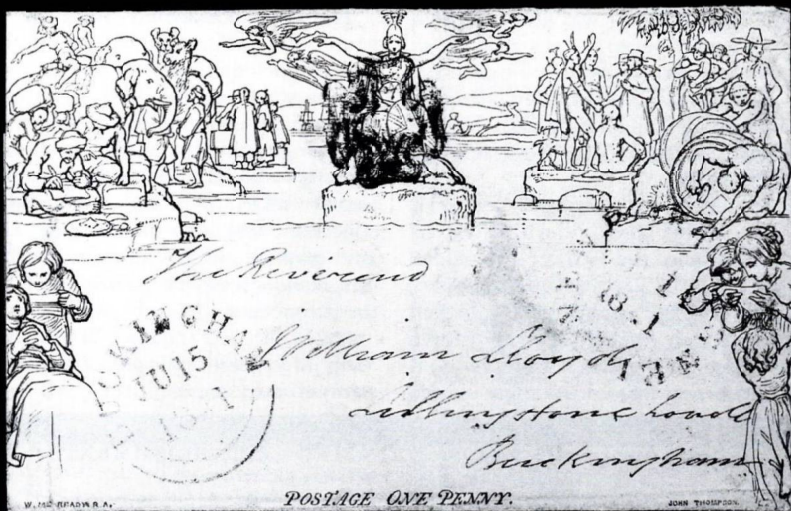 The Reverend
William Lloyd
Lillingstone Lovell
Buckingham
BUCKINGHAM
JU 15
POSTAGE ONE PENNY.
JOHN THOMPSON.